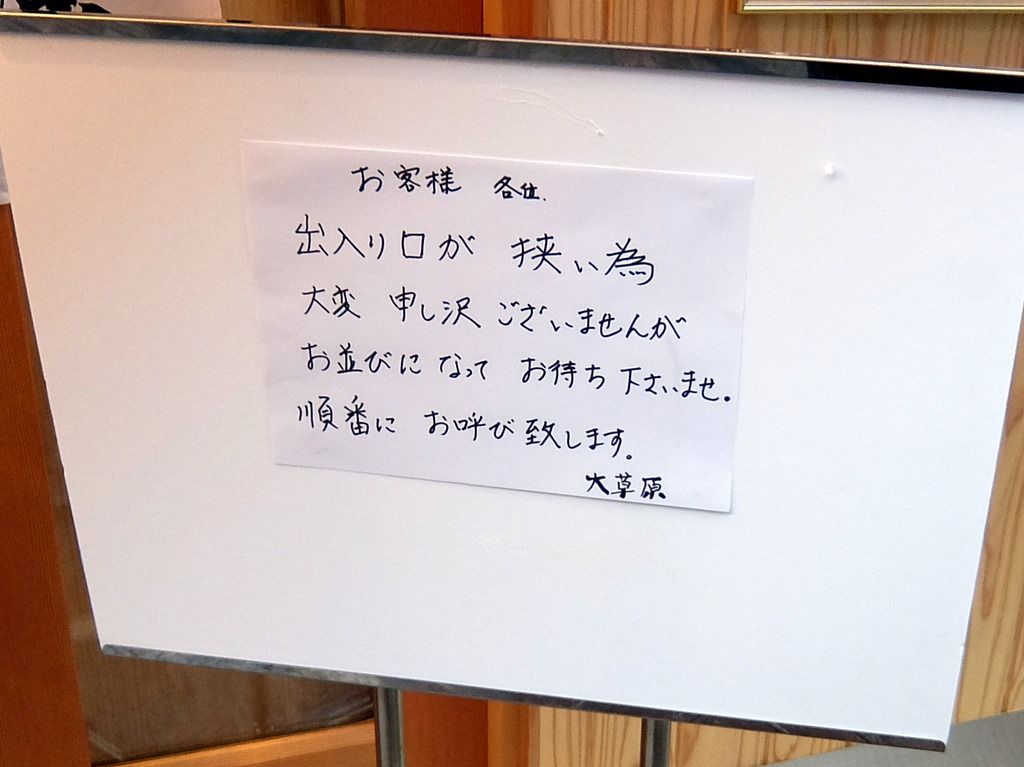 お客様 各位.
出入り口が 挟い為
大変 申し沢ございませんが
お並びになって お待ち下さいませ。
順番に お呼び致します。
大草原